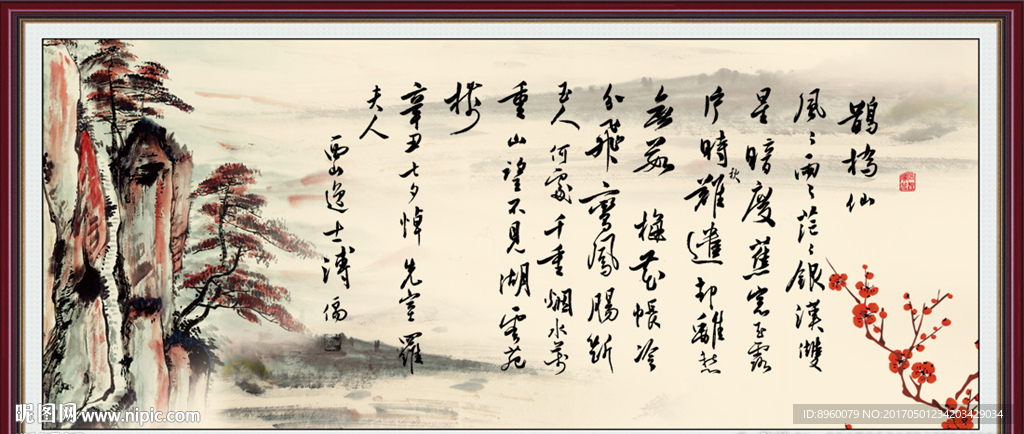 鵲橋仙
風〻雨〻茫〻銀漢雙
星暗度蕉窗玉露
片時秋難遣却離愁
無數梅花帳冷
分飛鸞鳳腸斷
玉人何處千重煙水萬
重山望不見湖雲苑
樹
辛丑七夕悼先室羅
夫人
西山逸士溥儒
昵图网 www.nipic.com
ID:8960079 NO:20170501234203429034